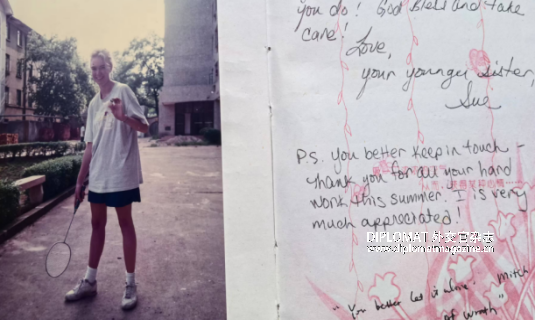 you do! God Bless and take
care!
Love,
your younger sister,
Sue
P.S. you better keep in touch -
Thank you for all your hard
work this summer. I is very
much appreciated!
DIPLOMAT 外交官杂志
www.diplomatmagazine.cn
"You better let it alone. Mitch
of wrath"